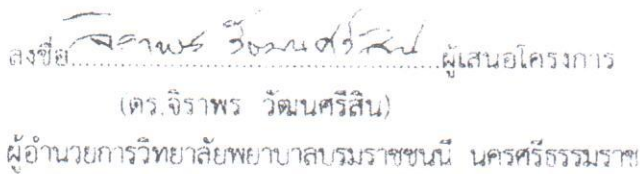 ลงชื่อ จิราพร วัฒนศรีสิน ผู้เสนอโครงการ
(ดร.จิราพร วัฒนศรีสิน)
ผู้อำนวยการวิทยาลัยพยาบาลบรมราชชนนี นครศรีธรรมราช